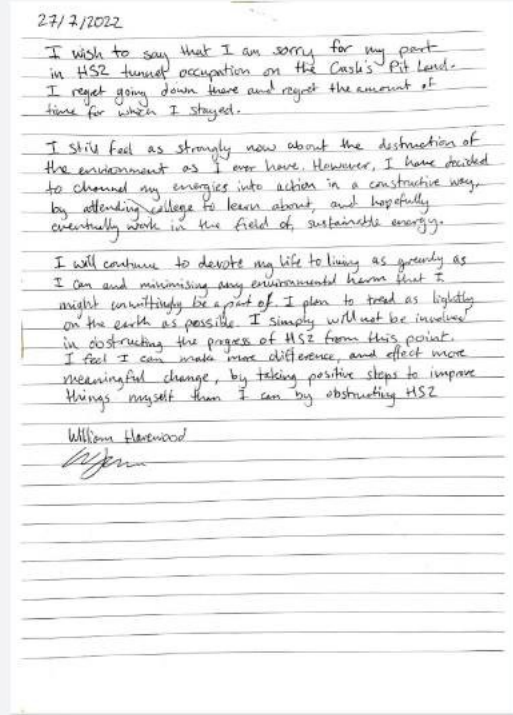 27/7/2022
I wish to say that I am sorry for my part
in HS2 tunnel occupation on the Cash's Pit Land.
I regret going down there and regret the amount of
time for which I stayed.
I still feel as strongly now about the destruction of
the environment as I ever have. However, I have decided
to channel my energies into action in a constructive way,
by attending college to learn about, and hopefully
eventually work in the field of, sustainable energy.
I will continue to devote my life to living as greenly as
I can and minimising any environmental harm that I
might unwittingly be a part of. I plan to tread as lightly
on the earth as possible. I simply will not be involved
in obstructing the progress of HS2 from this point.
I feel I can make more difference, and effect more
meaningful change, by taking positive steps to improve
things myself than I can by obstructing HS2
William Harewood